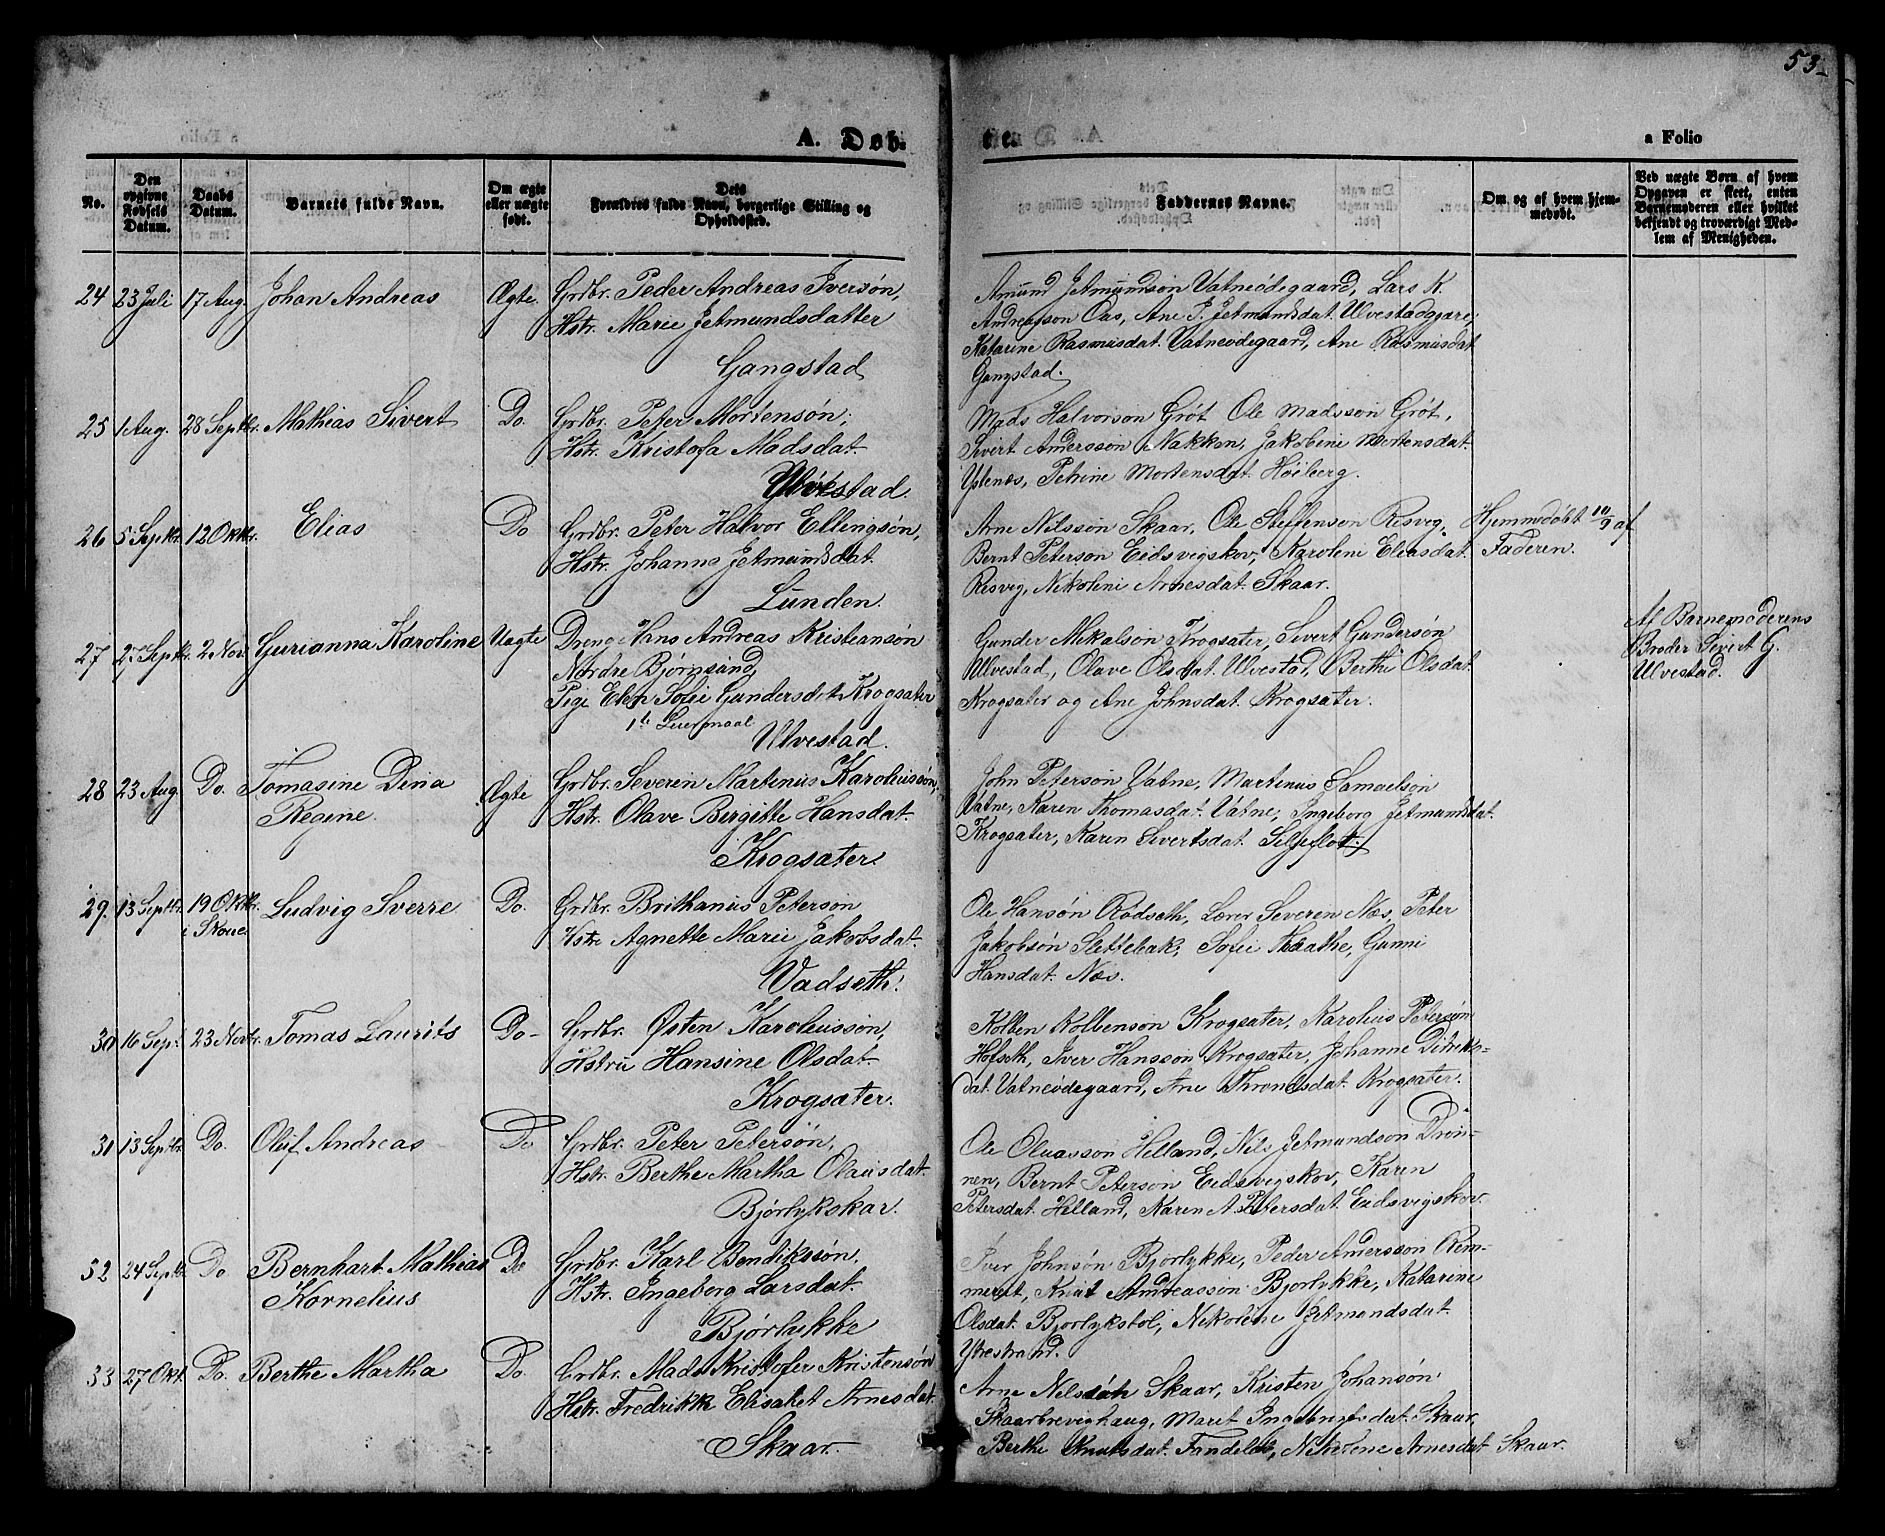 53
A. Døb-
te.
a Folio
No.
Den opgivne Fødsels Datum.
Daabs Datum.
Barnets fulde Navn.
Om ægte eller uægte født.
Dets Forældres fulde Navn, borgerlige Stilling og Opholdssted.
Faddernes Navne.
Om og af hvem hjemmedøbt.
Ved uægte Børn af hvem Opgaven er skeet, enten Barnemoderen eller hvilket bekjendt og troværdigt Medlem af Menigheden.
24 23 Juli 17 Aug. Johan Andreas Ægte. Grdbr. Peder Andreas Iversøn,
Hstr. Marie Jetmundsdatter
Gangstad
Amund Jetmundson Vatneødegaard, Lars K.
Andreasson Aas, Ane J. Jetmundsdat. Ulvestadgjære,
Katarine Rasmusdat. Vatneødegaard, Ane Rasmusdat
Gangstad.
25 1 Aug. 28 Septbr. Mathias Sivert Do. Grdbr. Peter Mortensøn,
Hstr. Kristofa Madsdat.
Ulvestad.
Mads Halvorson Grøt Ole Madsson Grøt,
Sivert Andersson Nakken, Jakobine Mortensdat.
Ystenæs, Petrine Mortensdat. Høiberg.
26 5 Septbr. 12 Oktbr. Elias Do Grdbr. Peter Halvor Ellingsøn,
Hstr. Johanna Jetmundsdat.
Lunden.
Arne Nilsson Skaar, Ole Steffenson Resveg,
Bernt Peterson Eidsvigskov, Karoline Eliasdat.
Resveg, Nikoline Arnesdat. Skaar.
Hjemmedøbt 10/9 af
Faderen.
27 27 Septbr. 2 Nov. Gurianna Karoline Uægte Dreng Hans Andreas Kristiansøn
Nordre Bjørnsund
Pige Elen Sofie Gundersdat Krogsæter
1ste Leiermaal
Ulvestad.
Gunder Mikalson Krogsæter, Sivert Gundersøn
Ulvestad, Olave Olsdat. Ulvestad, Berthe Olsdat.
Krogsæter og Ane Johnsdat. Krogsæter.
Af Barnemoderens
Broder Sivert G.
Ulvestad.
28 23 Aug. Do. Tomasine Dina Ægte Grdbr. Severin Martinus Karoliussøn,
Regine Hstr. Olave Birgitte Hansdat.
Krogsæter.
John Peterson Vatne, Martinus Samuelson
Vatne, Karen Thomasdat. Vatne, Ingeborg Jetmundsdat.
Krogsæter, Karen Sivertsdat. Siljeflot.
29. 13 Septbr. 19 Oktbr. Ludvig Sverre Do. Grdbr. Brithanus Peterson
i Skoue. Hstr. Agnette Marie Jakobsdat.
Vadseth.
Ole Hansøn Rødseth, Lærer Severin Næs, Peter
Jakobsøn Slettebak, Sofie Maathe, Gunni
Hansdat. Næs.
30 16 Sept. 23 Novbr. Tomas Laurits Do- Grdbr. Østen Karoliussøn,
Hstru Hansine Olsdat.
Krogsæter.
Kolben Kolbenson Krogsæter, Karolius Petersøn
Hofseth, Iver Hansson Krogsæter, Johanne Didriks-
dat. Vatneødegaard, Ane Throndsdat. Krogsæter.
31 13 Septbr. Do. Oluf Andreas Do Grdbr. Peter Petersøn,
Hstr. Berthe Martha Olausdat.
Bjørlykskar.
Ole Oluasson Helland, Nils Jetmundson Drøn-
nen, Bernt Peterson Eidsvigskov, Karen
Petersdat. Helland, Karen A. Petersdat. Eidsvigskov.
32 24 Septbr. Do Bernhart Mathias Do Grdbr. Karl Bendikssøn,
Kornelius Hstr. Ingeborg Larsdat.
Bjørlykke
Iver Johnsøn Bjørlykke, Peder Andersson Rem-
meret, Knut Andreasson Bjorlykke, Katarine
Olsdat. Bjorlykstøl, Nikoline Jetmundsdat.
Ytrestrand.
33 27 Okt. Do. Berthe Martha Do. Grdbr. Mads Kristofer Kristensøn
Hstr. Fredrikke Elisabet Arnesdat.
Skaar.
Arne Nilsson Skaar, Kristen Johansøn
Skaarbrevighaug, Maret Ingebrigtsdat. Skaar,
Berthe Knutsdat. Tandeldt, Nikoline Arnesdat Skaar.